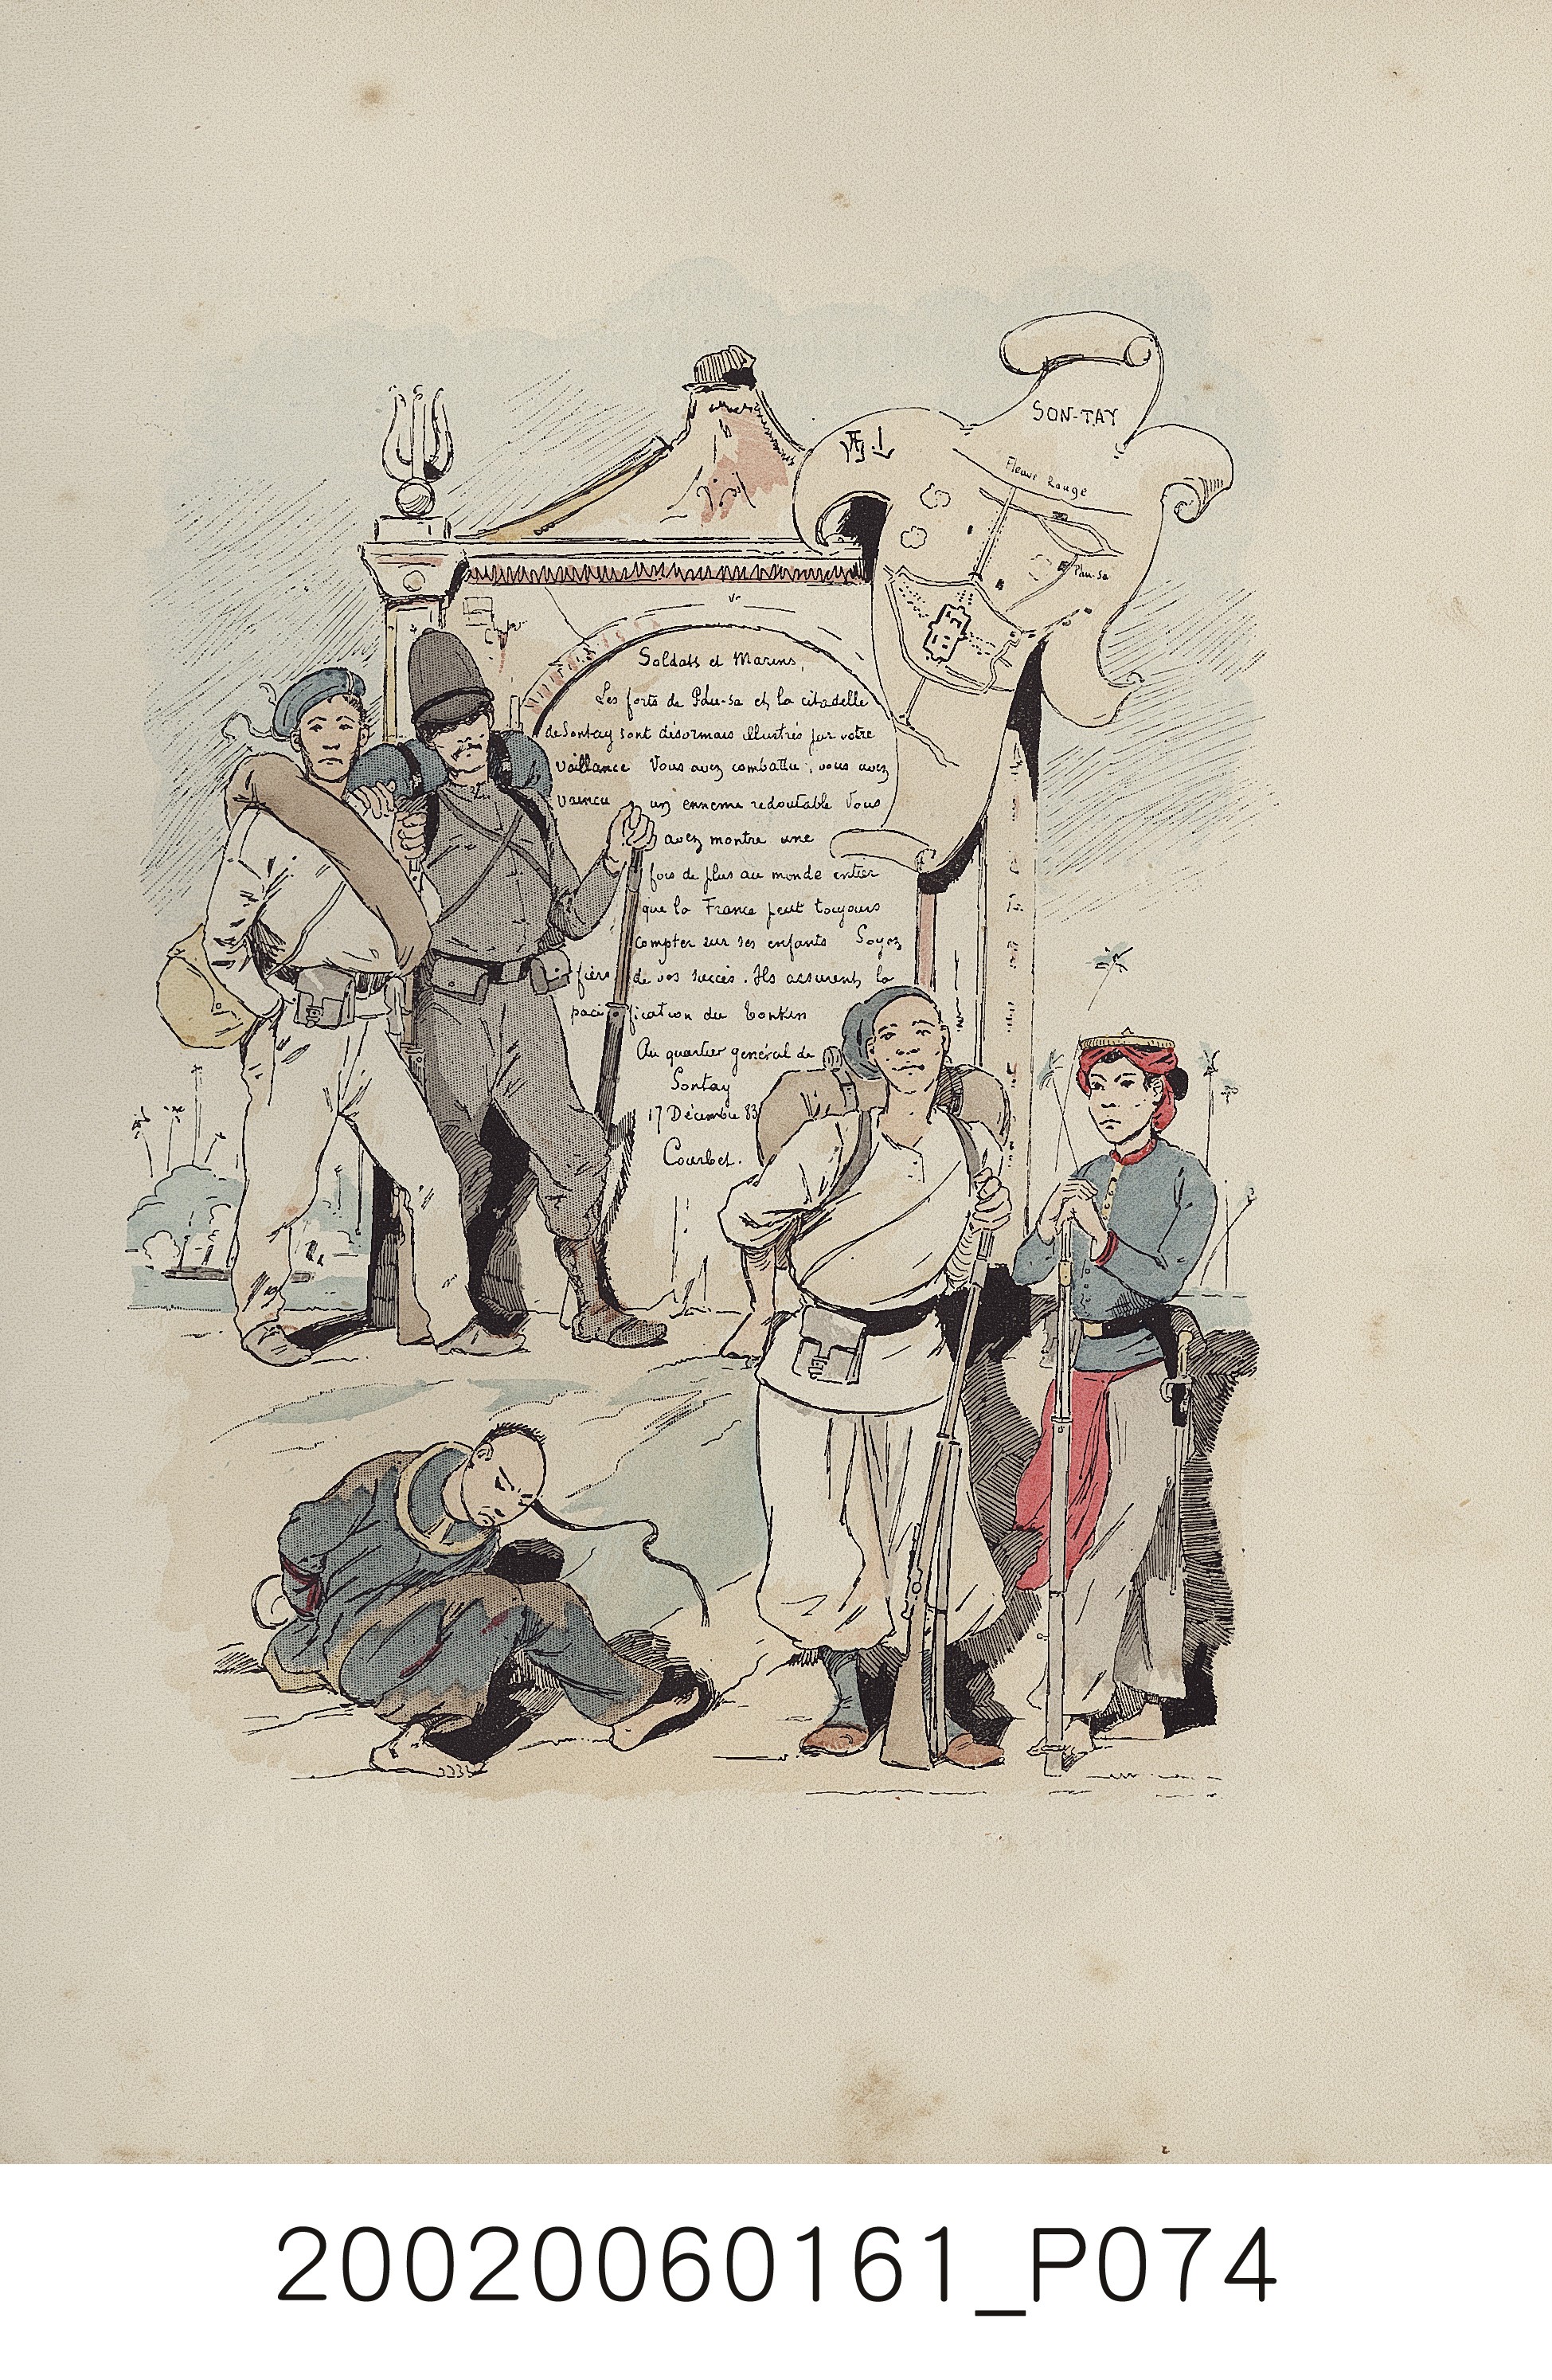 SON-TAY
Fleuve Rouge
Phu-Sa
Soldats et Marins,
Les forts de Phu-sa et la citadelle
de Sontay sont désormais illustrés par votre
vaillance Vous avez combattu, vous avez
vaincu un ennemi redoutable Vous
avez montré une
fois de plus au monde entier
que la France peut toujours
compter sur ses enfants Soyez
fiers de vos succès. Ils assurent la
pacification du Tonkin
Au quartier général de
Sontay
17 Décembre 83
Courbet.
20020060161_P074